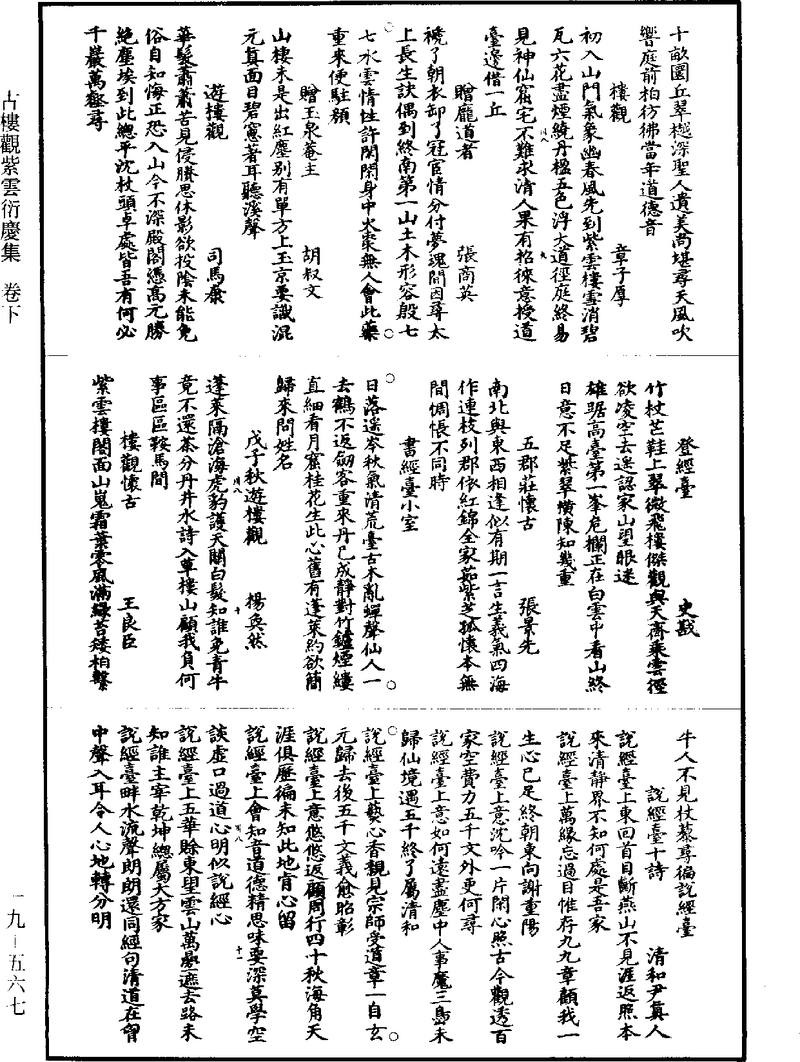 十畝園丘翠樾深聖人遺美尚堪尋天風吹
響庭前柏彷彿當年道德音
樓觀 章子厚
初入山門氣象幽春風先到紫雲樓雲消碧
瓦六花盡煙繞丹楹五色浮大道徑庭終易
見神仙窟宅不難求清人果有招徠意授道
臺邊借一丘
贈龐道者 張商英
褫了朝衣卸了冠宦情分付夢魂間因尋太
上長生訣偶到終南第一山土木形容殷七
七水雲情性許閑閑身中火棗無人會此藥
重來便駐顏
贈玉泉菴主 胡叔文
山棲未是出紅塵別有單方上玉京要識混
元真面目碧窻著耳聽溪聲
遊樓觀 司馬康
華髮蕭蕭苦見侵勝思休影欲投陰未能免
俗自知悔正恐入山今不深殿閣憑高元勝
絕塵埃到此總平沈杖頭卓處皆吾有何必
千巖萬壑尋
登經臺 史戩
竹杖芒鞋上翠微飛樓傑觀與天齊乘雲徑
欲凌空去遙認家山望眼迷
雄踞高臺第一峯危欄正在白雲中看山終
日意不足紫翠橫陳知幾重
五郡莊懷古 張景先
南北與東西相逢似有期一言生義氣四海
作連枝列郡依紅錦全家茹紫芝孤懷本無
間惆悵不同時
書經臺小室
日落遥岑秋氣清荒臺古木亂蟬聲仙人一
去鶴不返劒客重來丹已成靜對竹鑪煙縷
直細看月窻桂花生此心舊有蓬萊約欲簡
歸來問姓名
戊子秋遊樓觀 楊奐然
蓬萊隔滄海虎豹護天關白髮知誰免青牛
竟不還茶分丹井水詩入草樓山顧我負何
事區區鞍馬間
樓觀懷古 王良臣
紫雲樓閣面山嵬霜葉零風滿綠苔矮柏繫
牛人不見杖藜尋徧說經臺
說經臺十詩 清和尹真人
說經臺上東回首目斷燕山不見涯返照本
來清靜界不知何處是吾家
說經臺上萬緣忘過目惟存九九章顧我一
生心已足終朝東向謝重陽
說經臺上意沈吟一片閑心照古今觀透百
家空費力五千文外更何尋
說經臺上意如何遠盡塵中人事魔三島未
歸仙境遇五千終了屬清和
說經臺上藝心香親見宗師受道章一自玄
元歸去後五千文義愈昭彰
說經臺上意悠悠返顧周行四十秋海角天
涯俱歷徧未知此地肯心留
說經臺上會知音道德精思味要深莫學空
談虛口過道心明似說經心
說經臺上五華賒東望雲山萬疊遮去路未
知誰主宰乾坤總屬大方家
說經臺畔水流聲朗朗還同經句清道在會
中聲入耳令人心地轉分明
古樓觀紫雲衍慶集 卷下
一九-五六七